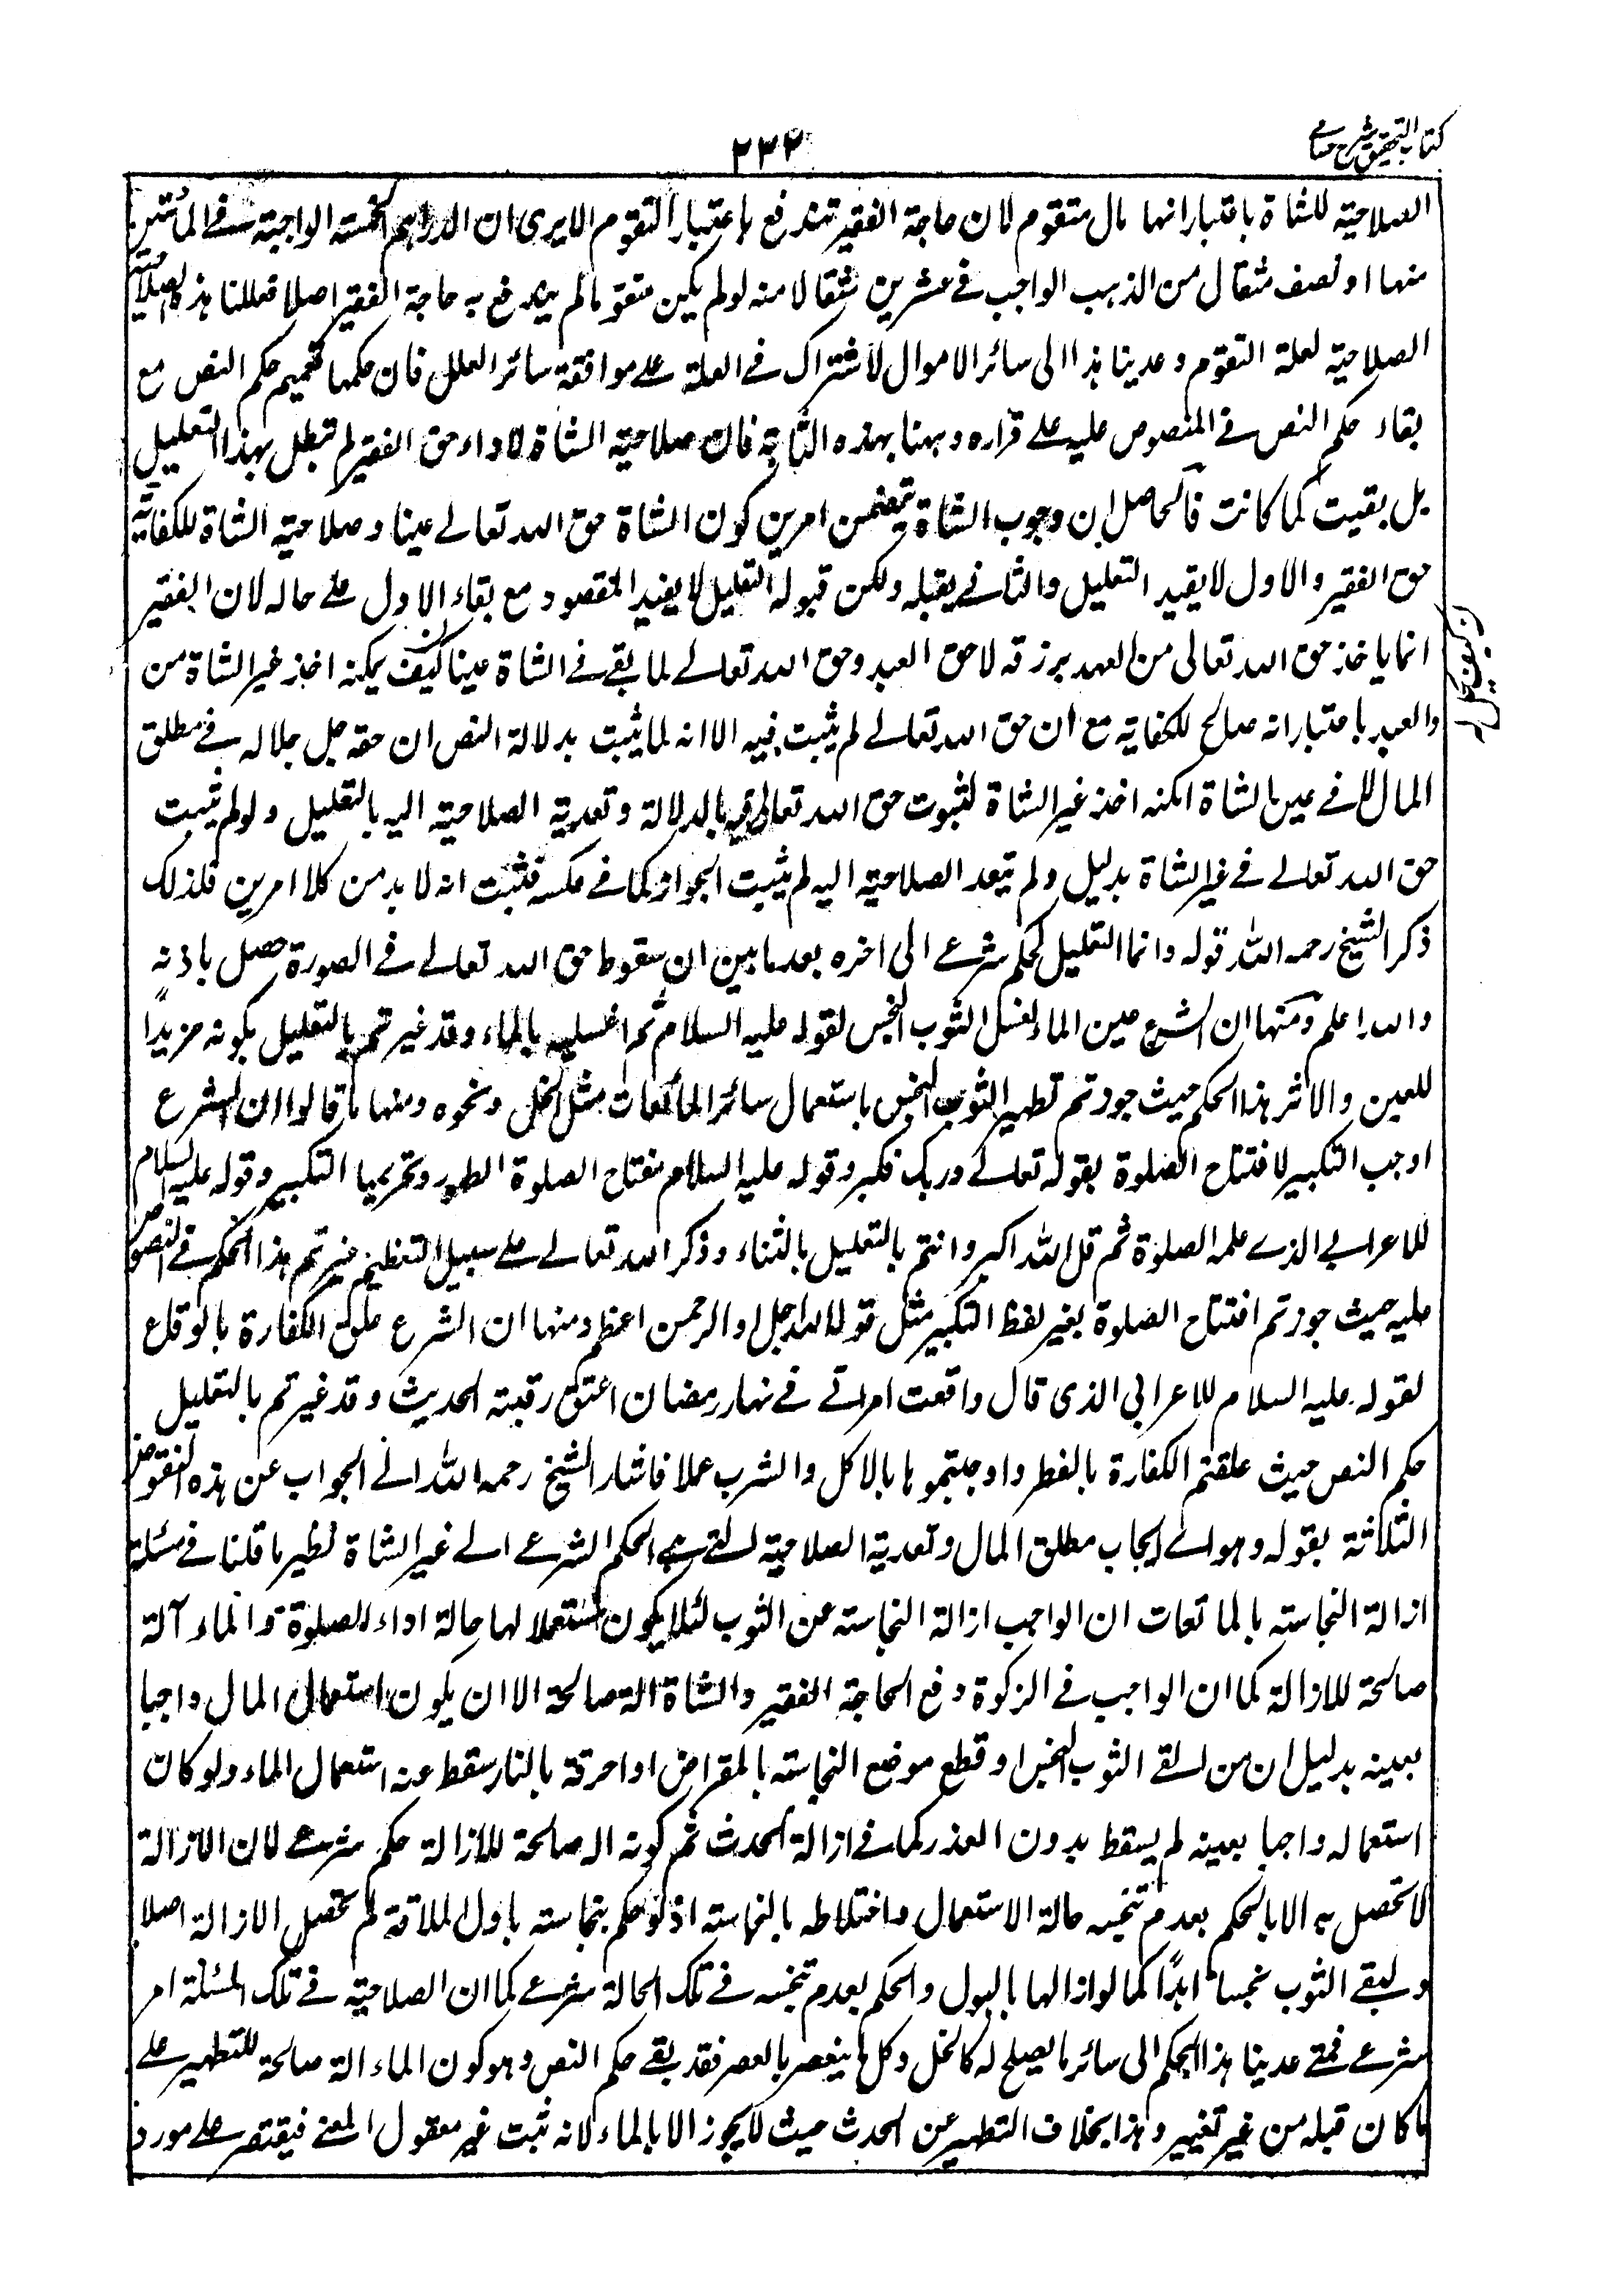 كتاب التحقيق شرح حسامي
٢٣٤
الصلاحية للشاة باعتبار انها مال متقوم لان حاجة الفقير تندفع باعتبار التقوم الا يرى ان الدراهم الخمسة الواجبة في المائتين
منها او نصف مثقال من الذهب الواجب في عشرين مثقالا منه لو لم يكن متقوما لم يندفع به حاجة الفقير اصلا فعللنا هذه الصلاحية
الصلاحية لعلة التقوم وعدينا هذا الى سائر الاموال لاشتراك في العلة على موافقة سائر العلل فان حكمها تعميم حكم النص مع
بقاء حكم النص في المنصوص عليه على قراره وههنا بهذه المثابة فان صلاحية الشاة لاداء حق الفقير لم تبطل بهذا التعليل
بل بقيت كما كانت فالحاصل ان وجوب الشاة يتضمن امرين كون الشاة حق الله تعالى عينا وصلاحية الشاة للكفاية
حق الفقير والاول لا يقيد التعليل والثاني يقبله ولكن قبوله التعليل لا يفيد المقصود مع بقاء الاول على حاله لان الفقير
انما ياخذ حق الله تعالى من العبد برزقه لا حق العبد وحق الله تعالى لما بقي في الشاة عينا كيف يمكنه اخذ غير الشاة من
والعبد باعتبار انه صالح للكفاية مع ان حق الله تعالى لم يثبت فيه الا انه لما يثبت بدلالة النص ان حقه جل جلاله في مطلق
المال لا في عين الشاة امكنه اخذ غير الشاة لثبوت حق الله تعالى فيه بالدلالة وتعدية الصلاحية اليه بالتعليل ولو لم يثبت
حق الله تعالى في غير الشاة بدليل ولم يتعد الصلاحية اليه لم يثبت الجواز كما في عكسه فثبت انه لا بد من كلا امرين فلذلك
ذكر الشيخ رحمه الله قوله وانما التعليل لحكم شرعي الى اخره بعد ما بين ان سقوط حق الله تعالى في الصورة حصل باذنه
والله اعلم ومنها ان الشرع عين الماء لغسل الثوب النجس لقوله عليه السلام ثم اغسليه بالماء وقد غيرتم بالتعليل بكونه مزيلا
للعين والاثر هذا الحكم حيث جوزتم تطهير الثوب النجس باستعمال سائر المائعات مثل الخل ونحوه ومنها ما قالوا ان الشرع
اوجب التكبير لافتتاح الصلوة بقوله تعالى وربك فكبر وقوله عليه السلام مفتاح الصلوة الطهور وتحريمها التكبير وقوله عليه السلام
للاعرابي الذي علمه الصلوة ثم قل الله اكبر وانتم بالتعليل بالثناء وذكر الله تعالى على سبيل التعظيم غيرتم هذا الحكم في المنصوص
عليه حيث جوزتم افتتاح الصلوة بغير لفظ التكبير مثل قوله الله اجل او الرحمن اعظم ومنها ان الشرع علق الكفارة بالوقاع
لقوله عليه السلام للاعرابي الذي قال واقعت امراتي في نهار رمضان اعتق رقبة الحديث وقد غيرتم بالتعليل
حكم النص حيث علقتم الكفارة بالفطر واوجبتموها بالاكل والشرب عملا فاشار الشيخ رحمه الله الى الجواب عن هذه النقوض
الثلاثة بقوله وهو ايجاب مطلق المال وتعدية الصلاحية التي هي الحكم الشرعي الى غير الشاة نظير ما قلنا في مسئلة
ازالة النجاسة بالمائعات ان الواجب ازالة النجاسة عن الثوب لئلا يكون مستعملا لها حالة اداء الصلوة والماء آلة
صالحة للازالة كما ان الواجب في الزكوة دفع الحاجة الفقير والشاة الة صالحة الا ان يكون استعمال المال واجبا
بعينه بدليل ان من القى الثوب النجس او قطع موضع النجاسة بالمقراض او احرقه بالنار سقط عنه استعمال الماء ولو كان
استعماله واجبا بعينه لم يسقط بدون العذر كما في ازالة الحدث ثم كونه الة صالحة للازالة حكم شرعي لان الازالة
لا تحصل به الا بالحكم بعدم تنجسه حالة الاستعمال واختلاطه بالنجاسة اذ لو حكم بنجاسته باول الملاقة لم تحصل الازالة اصلا
وبقي الثوب نجسا ابدا كما لو ازالها بالبول والحكم بعدم تنجسه في تلك الحالة شرعي كما ان الصلاحية في تلك المسئلة امر
شرعي فمتى عدينا هذا الحكم الى سائر ما يصلح له كالخل وكل ما ينعصر بالعصر فقد بقي حكم النص وهو كون الماء الة صالحة للتطهير على
ما كان قبله من غير تغيير وهذا بخلاف التطهير عن الحدث حيث لا يجوز الا بالماء لانه ثبت غير معقول المعنى فيقتصر على مورد